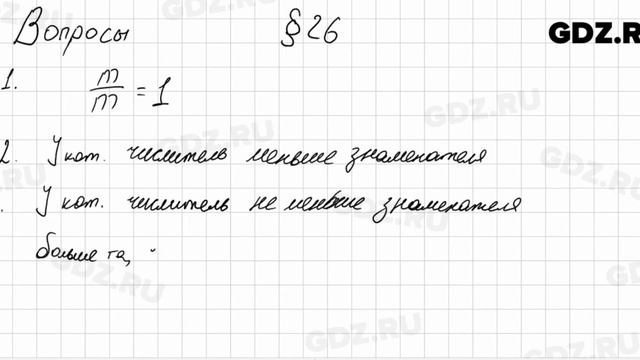 Вопросы § 26
GDZ.RU
1. m/m = 1
2. У кот. числитель меньше знаменателя
. У кот. числитель не меньше знаменателя
больше та,